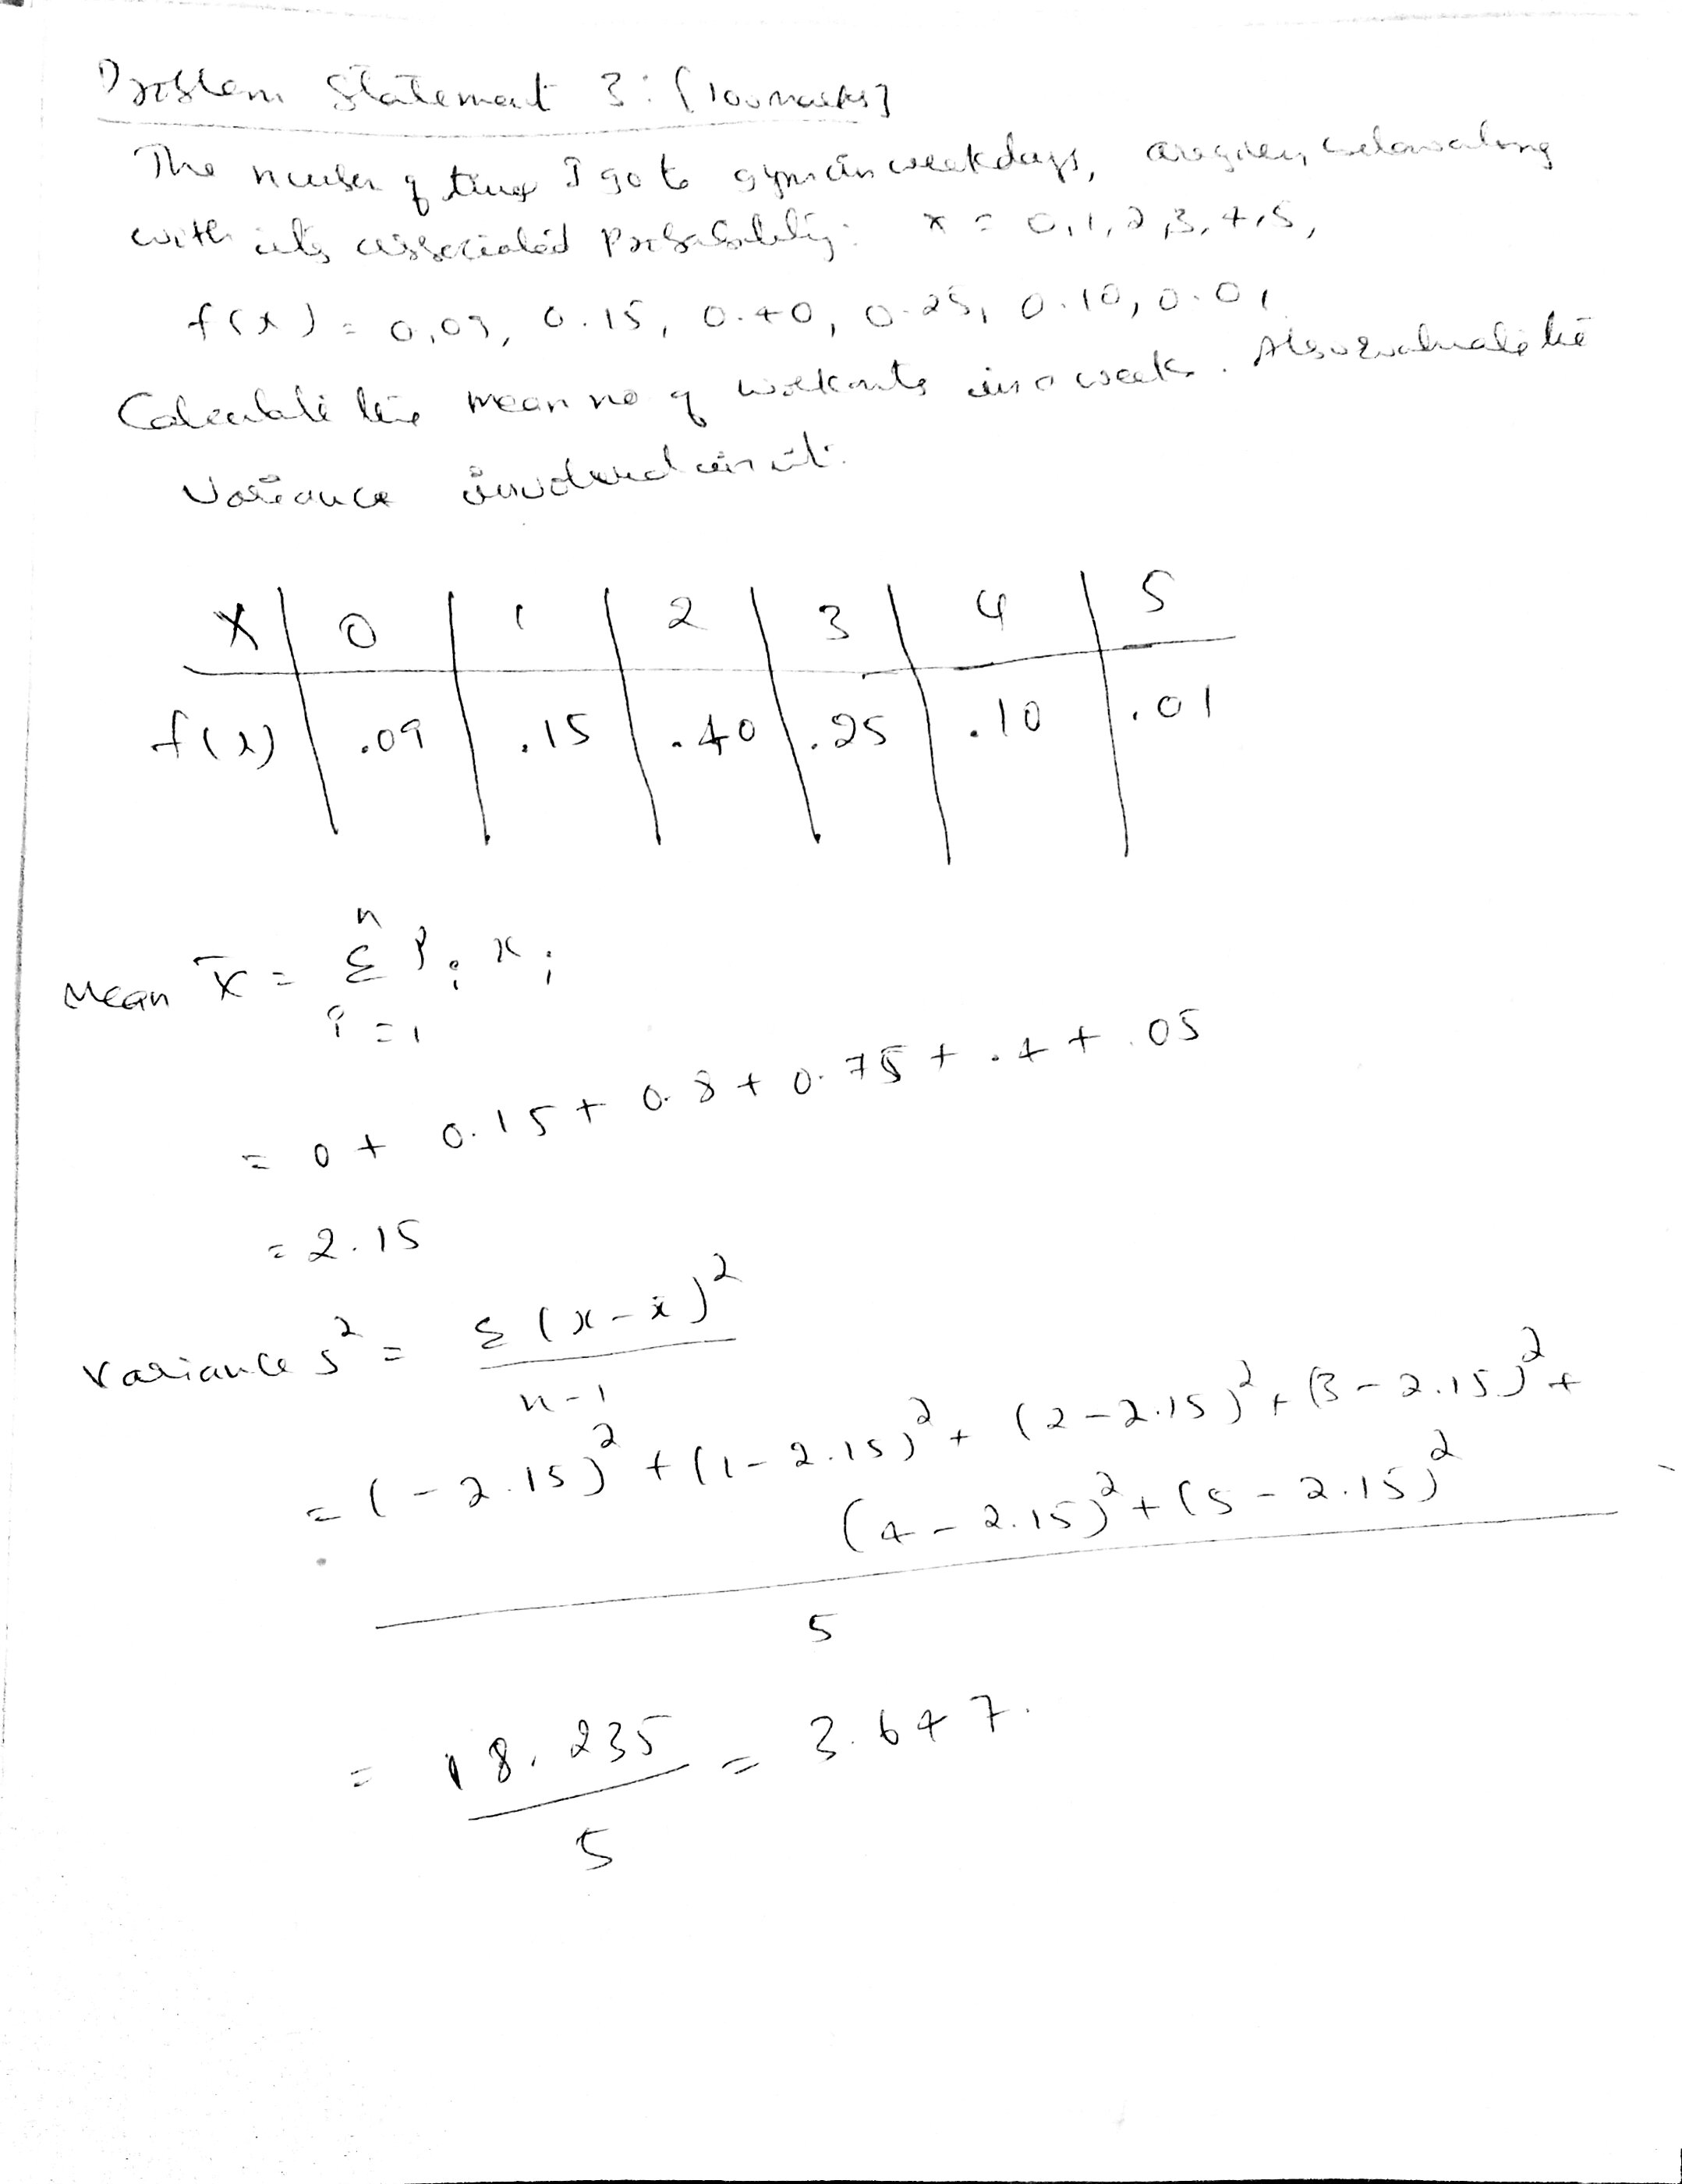 Problem Statement 3: [100 marks]
The number of times I go to gym in weekdays, are given below along
with its associated Probability: x = 0,1,2,3,4,5,
f(x) = 0.09, 0.15, 0.40, 0.25, 0.10, 0.01
Calculate the mean no of workouts in a week. Also evaluate the
Variance involved in it.
X | 0 | 1 | 2 | 3 | 4 | 5
f(x) | .09 | .15 | .40 | .25 | .10 | .01
Mean x̄ = Σ_{i=1}^{n} P_i x_i
= 0 + 0.15 + 0.8 + 0.75 + .4 + .05
= 2.15
Variance s² = Σ(x - x̄)² / n-1
= (-2.15)² + (1-2.15)² + (2-2.15)² + (3-2.15)² +
(4-2.15)² + (5-2.15)²
5
= 18.235 / 5 = 3.647.